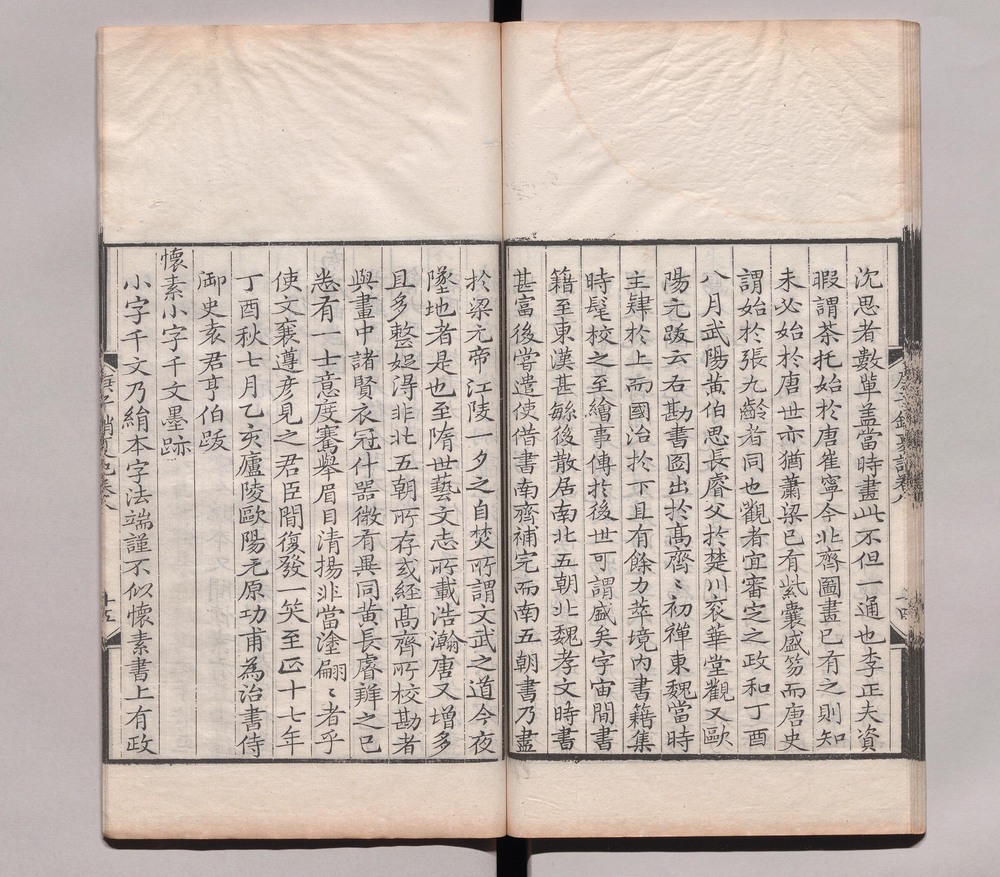 沈思者數單盖當時畫此不但一通也李正夫資
暇謂茶托始於唐崔寧今北齊圖畫已有之則知
未必始於唐世亦猶蕭梁已有紫囊盛笏而唐史
謂始於張九齡者同也觀者宜審定之政和丁酉
八月武陽黄伯思長睿父於楚川衮華堂觀又歐
陽元跋云右勘書圖出於髙齊〻初禪東魏當時
主肄於上而國治於下且有餘力萃境内書籍集
時髦校之至繪事傳於後世可謂盛矣字宙間書
籍至東漢甚緐後散居南北五朝北魏孝文時書
甚富後嘗遣使借書南齊補完而南五朝書乃盡
於梁元帝江陵一夕之自焚所謂文武之道今夜
墜地者是也至隋世藝文志所載浩瀚唐又增多
且多整娖得非北五朝所存或経髙齊所校勘者
與畫中諸賢衣冠什器微有異同黄長睿辨之已
悉有一士意度騫舉眉目清揚非當塗翩〻者乎
使文襄遵彦見之君臣間復發一笑至正十七年
丁酉秋七月乙亥廬陵歐陽元原功甫為治書侍
御史袁君亨伯跋
懷素小字千文墨跡
小字千文乃絹本字法端謹不似懷素書上有政